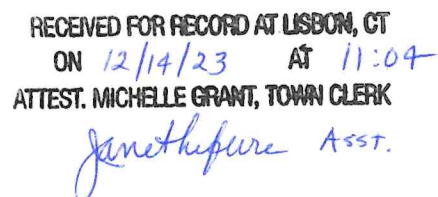 RECEIVED FOR RECORD AT LISBON, CT
ON 12/14/23 AT 11:04
ATTEST. MICHELLE GRANT, TOWN CLERK
Asst.